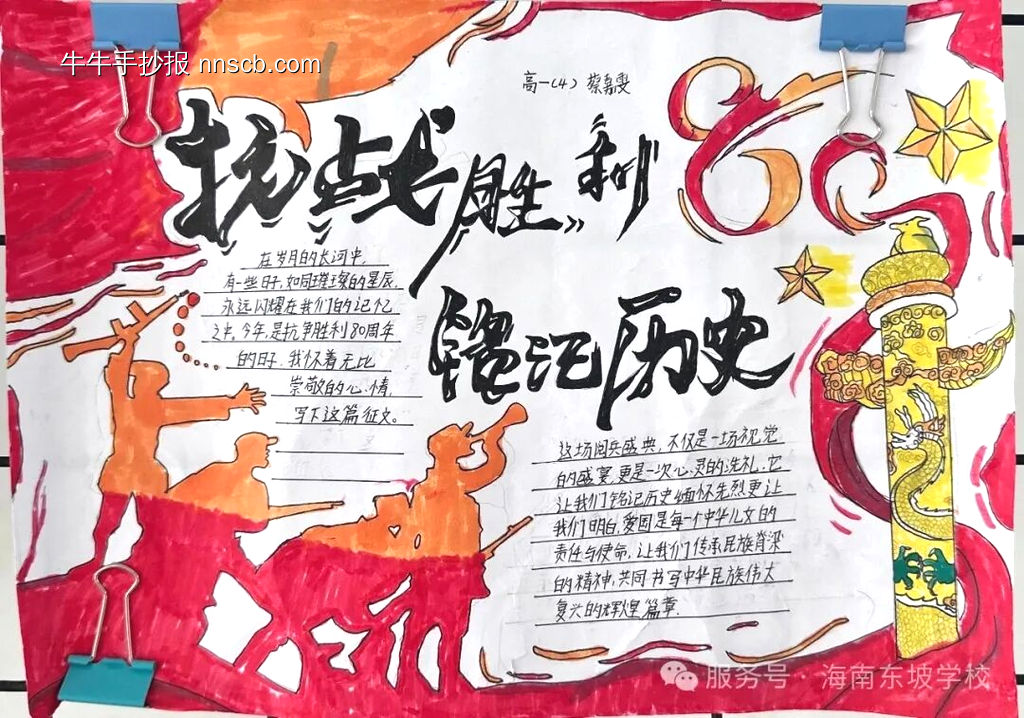 牛牛手抄报 nnscb.com
高一(4) 蔡嘉雯
抗战胜利80
铭记历史
在岁月的长河中,
有一些日子,如同璀璨的星辰,
永远闪耀在我们的记忆
之中。今年,是抗争胜利80周年
的日子.我怀着无比
崇敬的心情,
写下这篇征文。
这场阅兵盛典,不仅是一场视觉
的盛宴,更是一次心灵的洗礼.它
让我们铭记历史缅怀先烈更让
我们明白,爱国是每一个中华儿女的
责任与使命,让我们传承民族脊梁
的精神,共同书写中华民族伟大
复兴的辉煌篇章.
服务号·海南东坡学校